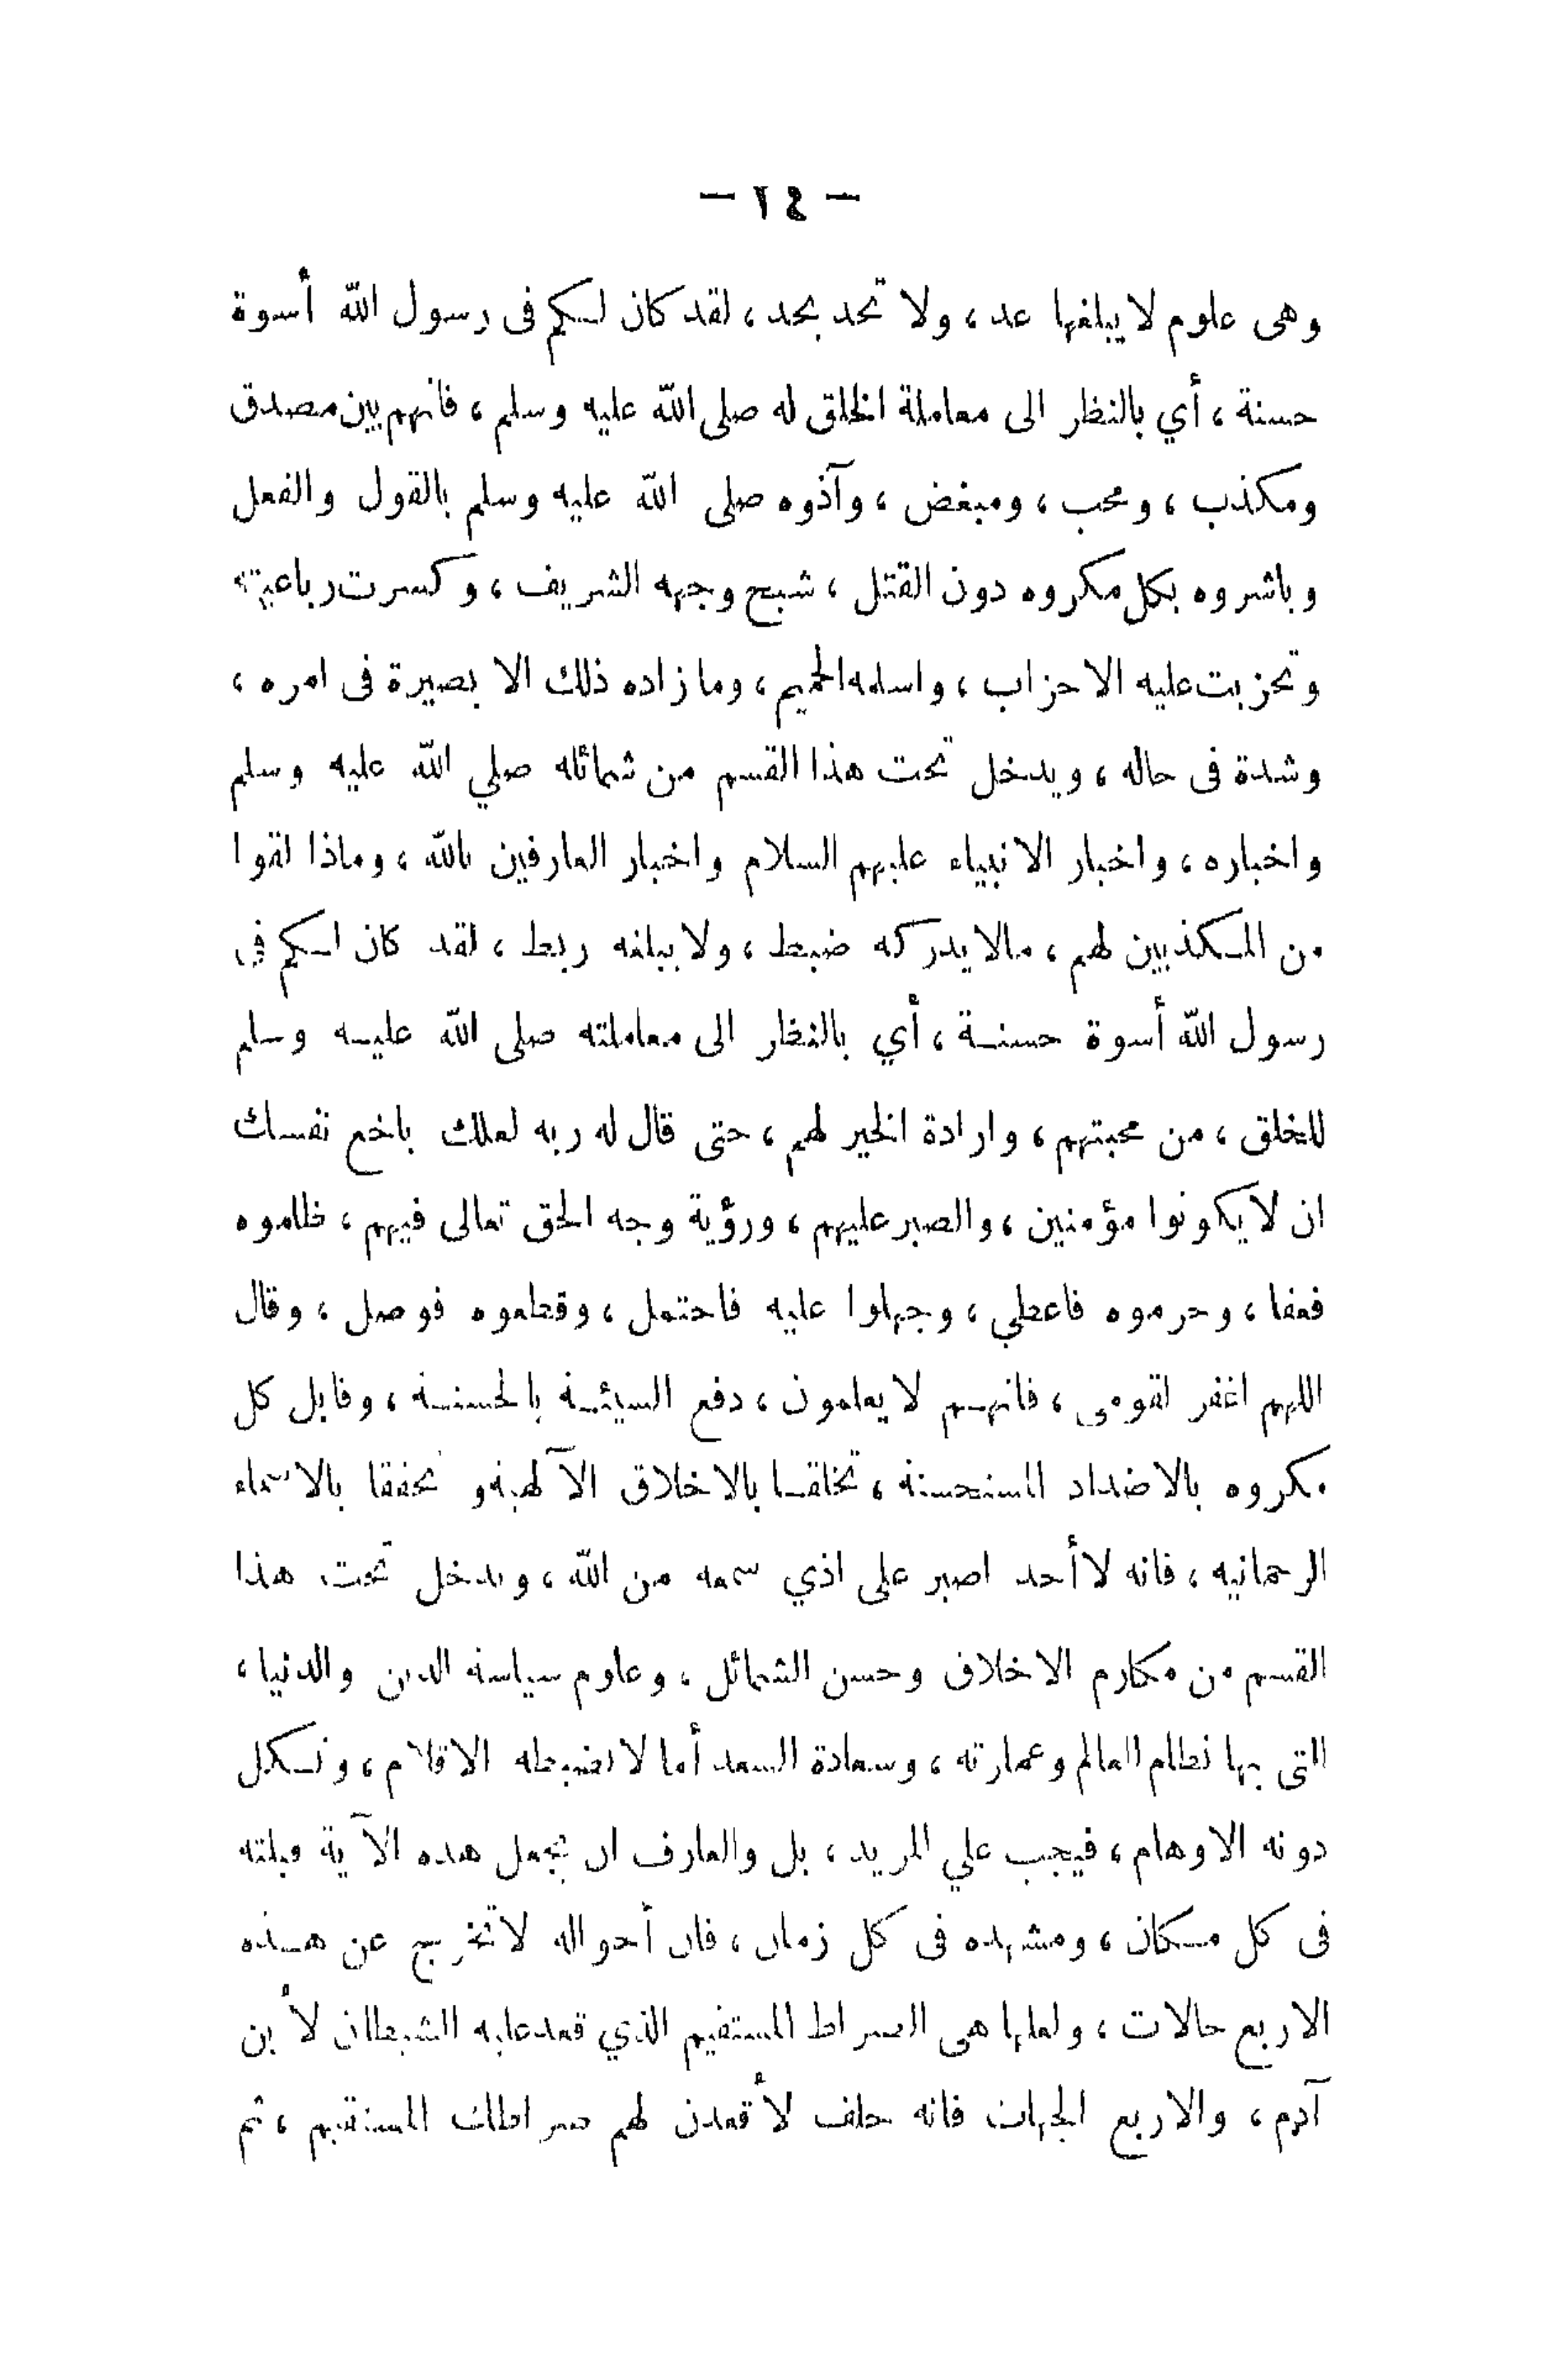 — ٢٤ —
وهى علوم لا يبلغها عد ، ولا تحد بحد ، لقد كان لكم فى رسول الله أسوة
حسنة ، أي بالنظر الى معاملة الخلق له صلى الله عليه وسلم ، فانهم بين مصدق
ومكذب ، ومحب ، ومبغض ، وآذوه صلى الله عليه وسلم بالقول والفعل
وباشروه بكل مكروه دون القتل ، شبح وجهه الشريف ، وكسرت رباعيته
وتحزبت عليه الاحزاب ، واسلمه الحميم ، وما زاده ذلك الا بصيرة فى امره ،
وشدة فى حاله ، ويدخل تحت هذا القسم من شمائله صلي الله عليه وسلم
واخباره ، واخبار الانبياء عليهم السلام واخبار العارفين بالله ، وماذا لقوا
من المكذبين لهم ، مالا يدركه ضبط ، ولا يبلغه ربط ، لقد كان لكم في
رسول الله أسوة حسنة ، أي بالنظر الى معاملته صلى الله عليه وسلم
للخلق ، من محبتهم ، وارادة الخير لهم ، حتى قال له ربه لعلك باخع نفسك
ان لا يكونوا مؤمنين ، والصبر عليهم ، ورؤية وجه الحق تعالى فيهم ، ظلموه
فعفا ، وحرموه فاعطي ، وجهلوا عليه فاحتمل ، وقطعوه فوصل ، وقال
اللهم اغفر لقومى ، فانهم لا يعلمون ، دفع السيئة بالحسنة ، وقابل كل
مكروه بالاضداد المستحسنة ، تخلقا بالاخلاق الآلهية و تحققا بالاسماء
الرحمانيه ، فانه لا أحد اصبر على اذي سمعه من الله ، ويدخل تحت هذا
القسم من مكارم الاخلاق وحسن الشمائل ، وعلوم سياسة الدين والدنيا ،
التى بها نظام العالم وعمارته ، وسعادة السعد أما لا تضبطه الاقلام ، وتكل
دونه الاوهام ، فيجب علي المريد ، بل والعارف ان يجعل هذه الآية قبلته
فى كل مكان ، ومشهده فى كل زمان ، فان أحواله لا تخرج عن هذه
الاربع حالات ، ولعلها هى الصراط المستقيم الذي قعد عليه الشيطان لأبن
آدم ، والاربع الجهات فانه حلف لأقعدن لهم صراطك المستقيم ، ثم